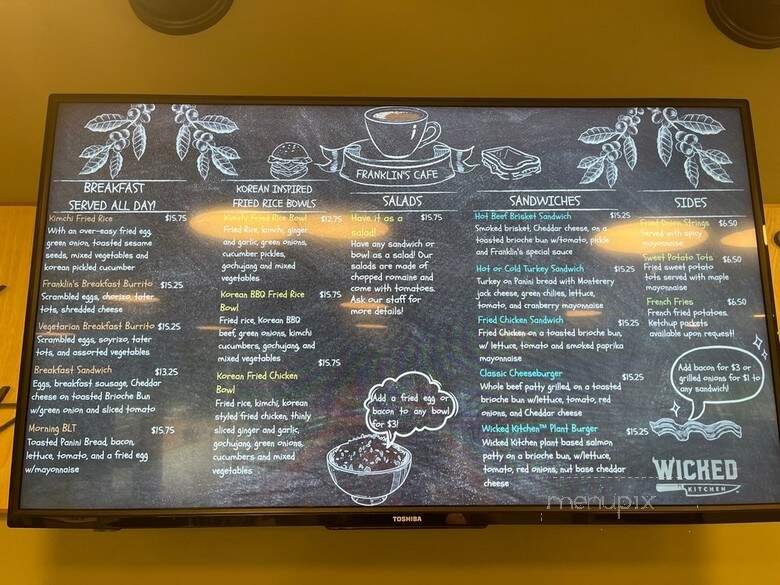 FRANKLIN'S CAFE
BREAKFAST
SERVED ALL DAY!
Kimchi Fried Rice $15.75
With an over-easy fried egg,
green onion, toasted sesame
seeds, mixed vegetables and
korean pickled cucumber
Franklin's Breakfast Burrito $15.25
Scrambled eggs, chorizo, tater
tots, shredded cheese
Vegetarian Breakfast Burrito $15.25
Scrambled eggs, soyrizo, tater
tots, and assorted vegetables
Breakfast Sandwich $13.25
Eggs, breakfast sausage, Cheddar
cheese on toasted Brioche Bun
w/green onion and sliced tomato
Morning BLT $15.75
Toasted Panini Bread, bacon,
lettuce, tomato, and a fried egg
w/mayonnaise
KOREAN INSPIRED
FRIED RICE BOWLS
Kimchi Fried Rice Bowl $12.75
Fried Rice, kimchi, ginger
and garlic, green onions,
cucumber pickles,
gochujang and mixed
vegetables
Korean BBQ Fried Rice $15.75
Bowl
Fried rice, Korean BBQ
beef, green onions, kimchi
cucumbers, gochujang, and
mixed vegetables
$15.75
Korean Fried Chicken
Bowl
Fried rice, kimchi, korean
styled fried chicken, thinly
sliced ginger and garlic,
gochujang, green onions,
cucumbers and mixed
vegetables
SALADS
Have it as a $15.75
salad!
Have any sandwich or
bowl as a salad! Our
salads are made of
chopped romaine and
come with tomatoes.
Ask our staff for
more details!
Add a fried egg or
bacon to any bowl
for $3!
SANDWICHES
Hot Beef Brisket Sandwich $15.25
Smoked brisket, Cheddar cheese, on a
toasted brioche bun w/tomato, pickle
and Franklin's special sauce
Hot or Cold Turkey Sandwich $15.25
Turkey on Panini bread with Monterery
jack cheese, green chilies, lettuce,
tomato, and cranberry mayonnaise
Fried Chicken Sandwich $15.25
Fried Chicken on a toasted brioche bun,
w/ lettuce, tomato and smoked paprika
mayonnaise
Classic Cheeseburger $15.25
Whole beef patty grilled, on a toasted
brioche bun w/lettuce, tomato, red
onions, and Cheddar cheese
Wicked Kitchen™ Plant Burger $15.25
Wicked Kitchen plant based salmon
patty on a brioche bun, w/lettuce,
tomato, red onions, nut base cheddar
cheese
SIDES
Fried Onion Strings $6.50
Served with spicy
mayonnaise
Sweet Potato Tots $6.50
Fried sweet potato
tots served with maple
mayonnaise
French Fries $6.50
French fried potatoes.
Ketchup packets
available upon request!
Add bacon for $3 or
grilled onions for $1 to
any sandwich!
WICKED
KITCHEN
menupix
TOSHIBA